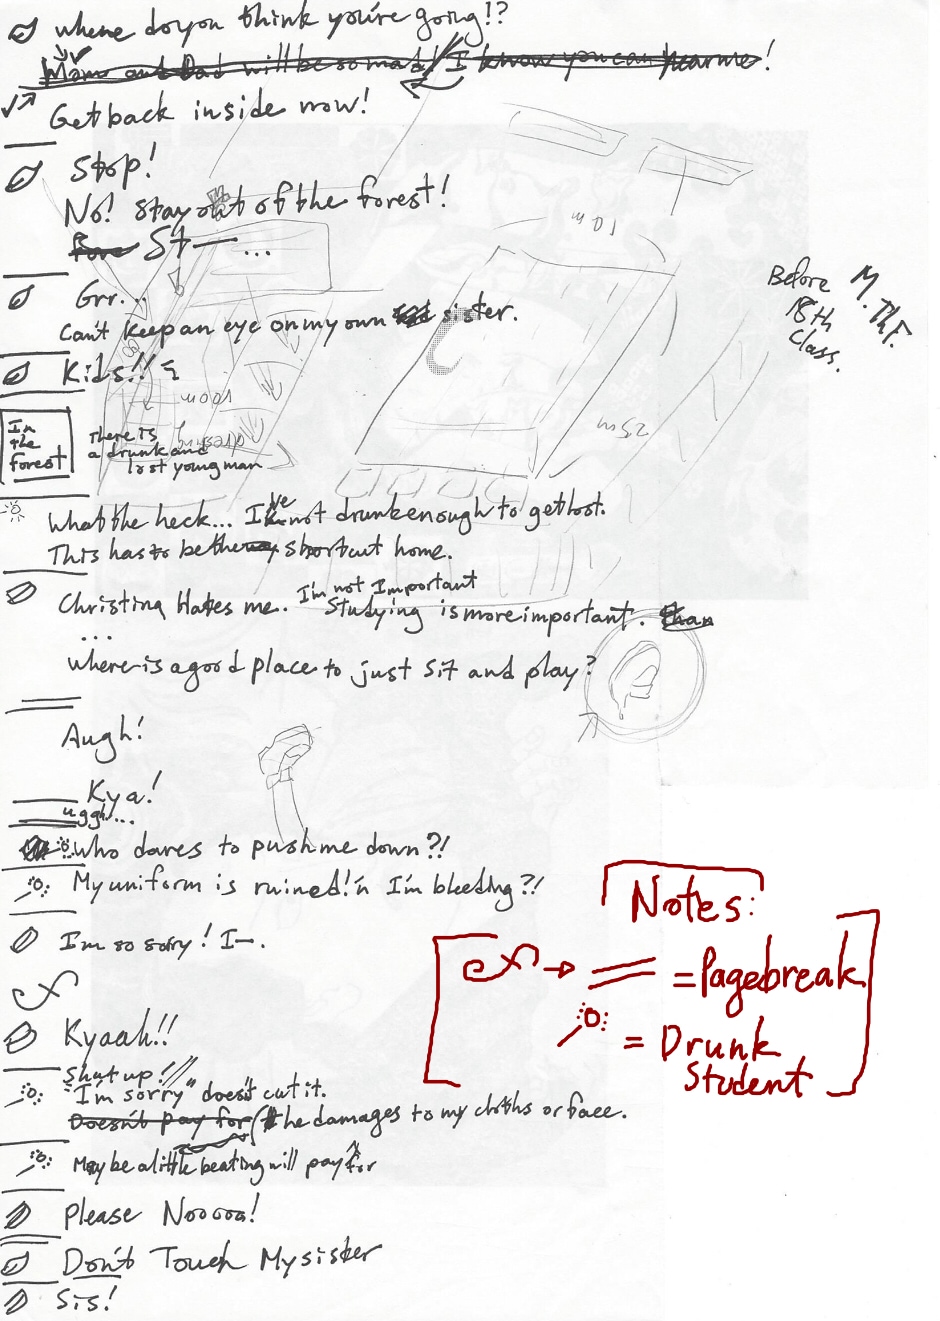 where do you think you're going!?
Mom and Dad will be so mad! I know you can hear me!
Get back inside now!
Stop!
No! Stay out of the forest!
St— ...
Before
18th
Class.
M. Thf.
Grr...
Can't keep an eye on my own sister.
Kids!!
In
the
forest
There is
a drunk and
lost young man
What the heck... I've not drunk enough to get lost.
This has to be the shortcut home.
I'm not Important
Christina Hates me. Studying is more important. than
...
where is a good place to just sit and play?
Augh!
Kya!
ugg...
Who dares to push me down?!
My uniform is ruined! 'n I'm bleeding?!
I'm so sorry! I—.
Kyaah!!
Shut up!
"I'm sorry" doesn't cut it.
Doesn't pay for the damages to my cloths or face.
Maybe a little beating will pay for
Please Nooooo!
Don't Touch My sister
Sis!
Notes:
= Pagebreak
= Drunk
Student